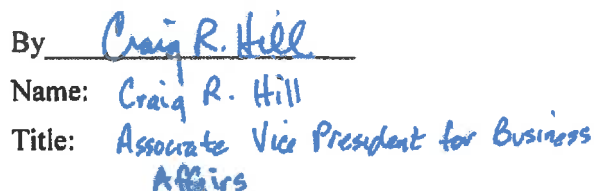 By Craig R. Hill
Name: Craig R. Hill
Title: Associate Vice President for Business
Affairs